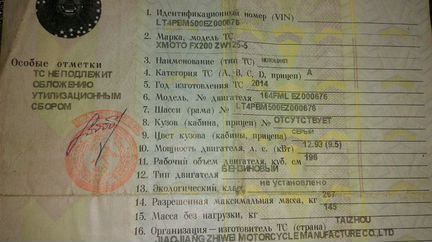 1. Идентификационный номер (VIN)
LT4PBM500EZ000676
2. Марка, модель ТС
XMOTO FX200 ZW125-5
3. Наименование (тип ТС) мотоцикл
4. Категория ТС (А, В, С, D, прицеп) А
5. Год изготовления ТС 2014
6. Модель, № двигателя 164FML EZ000676
7. Шасси (рама) № LT4PBM500EZ000676
8. Кузов (кабина, прицеп) № ОТСУТСТВУЕТ
9. Цвет кузова (кабины, прицепа) СЕРЫЙ
10. Мощность двигателя, л. с. (кВт) 12.93 (9.5)
11. Рабочий объем двигателя, куб. см 196
12. Тип двигателя БЕНЗИНОВЫЙ
13. Экологический класс не установлено
14. Разрешенная максимальная масса, кг 267
15. Масса без нагрузки, кг 145
16. Организация – изготовитель ТС (страна) TAIZHOU
JIAOJIANG ZHIWEI MOTORCYCLE MANUFACTURE CO LTD
Особые отметки
ТС НЕ ПОДЛЕЖИТ
ОБЛОЖЕНИЮ
УТИЛИЗАЦИОННЫМ
СБОРОМ